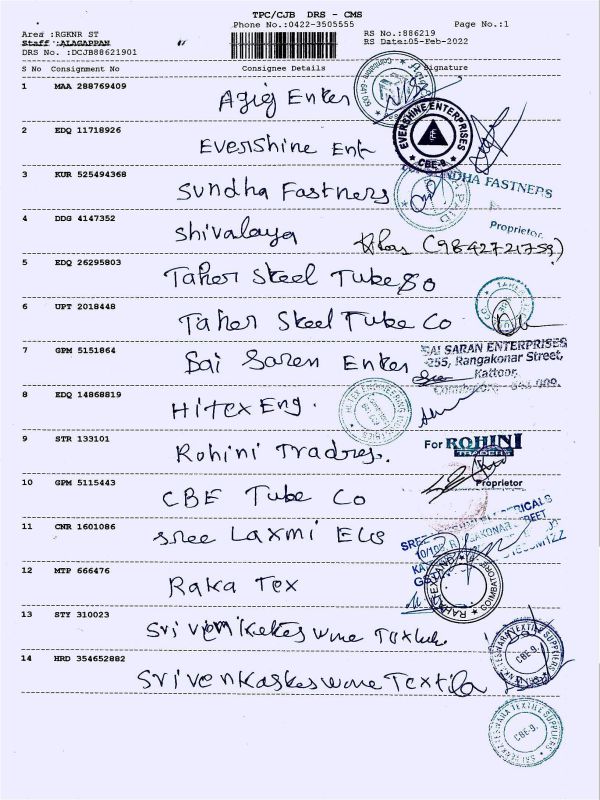 TPC/CJB DRS - CMS
Phone No.:0422-3505555 Page No.:1
Area :RGKNR ST RS No.:886219
Staff :ALAGAPPAN RS Date:05-Feb-2022
DRS No. :DCJB88621901
S No Consignment No Consignee Details Signature
1 MAA 288769409 Azig Enter
2 EDQ 11718926 Evershine Ent
EVERSHINE ENTERPRISES
CBE-9
3 KUR 525494368 Sundha Fastners
SUNDHA FASTNERS
Proprietor
4 DDG 4147352 Shivalaya (9842721759)
5 EDQ 26295803 Taher Steel Tube Co
6 UPT 2018448 Taher Steel Tube Co
7 GPM 5151864 Sai Saren Enter
SAI SARAN ENTERPRISES
255, Rangakonar Street,
Kattoor,
Coimbatore - 641 009.
8 EDQ 14868819 Hitex Eng.
HITEX ENGINEERING
9 STR 133101 Rohini Tradres.
For ROHINI
TRADERS
Proprietor
10 GPM 5115443 CBE Tube Co
11 CNR 1601086 Sree Laxmi Ele
12 MTP 666476 Raka Tex
COIMBATORE
13 STY 310023
TEXTILE SUPPLIERS
CBE-9.
14 HRD 354652882
SRI VENKATESHWARA TEXTILE SUPPLIERS
CBE-9.